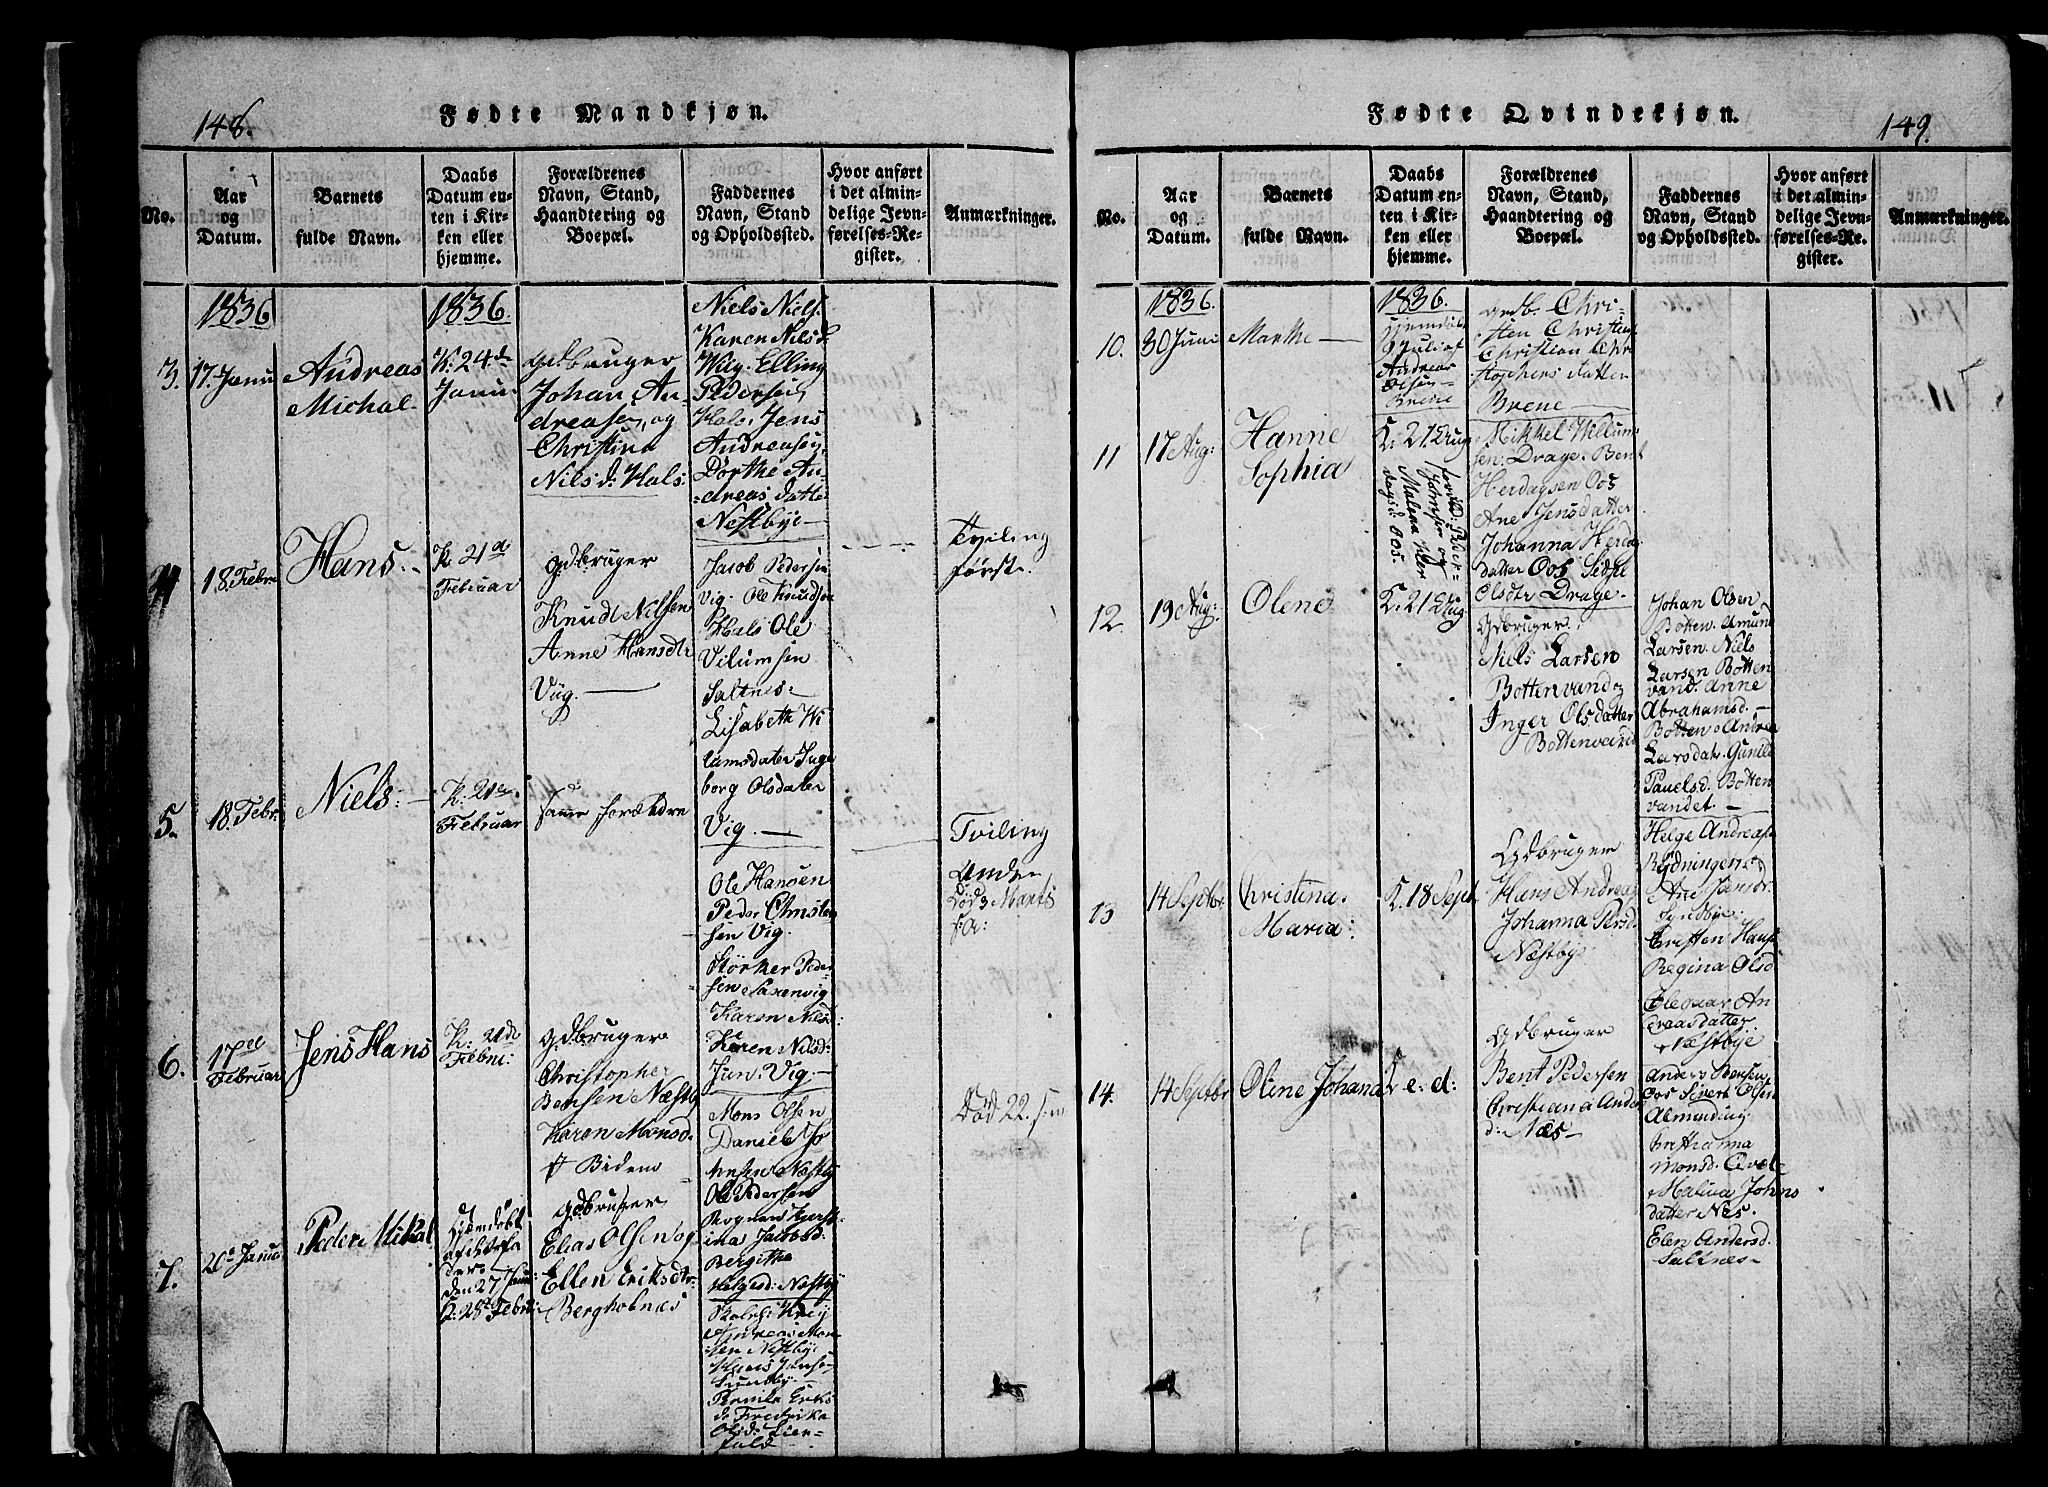 148.
Fødte Mandkjøn.
No.
Aar
og
Datum.
Barnets
fulde Navn.
Daabs
Datum en-
ten i Kir-
ken eller
hjemme.
Forældrenes
Navn, Stand,
Haandtering og
Boepæl.
Faddernes
Navn, Stand
og Opholdssted.
Hvor anført
i det almin-
delige Jevn-
førelses-Re-
gister.
Anmærkninger.
1836
1836.
3.
17. Janu
Andreas
Michal
K: 24de
Janu
Gdbruger
Johan An-
dreasen, og
Christina
Nils d: Hals:
Niels Niels.
Karen Nilsd
Wiig. Elling
Pedersen
Hals. Jens
Andreasen
Dorthe An-
dreas datte
Nestbye
4
18. Febru
Hans.
K 21d
Februar
gdbruger
Knudt Nilsen
Anne Hansdtr
Viig.
Jacob Pedersen
Vig. Ole Knudsen
Hals Ole
Vilumsen
Saltnes
Lisabeth Wi
lumsdater Inge
borg Olsdater
Vig.
Tviling
første.
5.
18. Febr.
Niels:
K: 21de
Februar
samme forældre
Ole Hansen
Peder Christen
sen Vig.
Størker Peder
sen Saxenvig
Karen Nilsd:
Karen Nilsd:
Jun: Vig.
Tviling
Anden
Død 3 Marts
s: A:
6.
17de
Februar
Jens Hans
K: 21de
Febru:
Gdbruger
Christopher
Bensen Næstby
Karen Monsd.
Bidem
Mons Olsen
Daniel Jo
hnsen Næstby
Ole Pedersen
Rognan Kjerst
ina Jacobsd:
Bergithe
Helgesd: Næstby
Død 22. s: m
7.
20de Janua
Peder Mikal
Hjemdøbt
af
den 27 Janu:
K: 28de Februa
Gdbruger
Elias Olsen og
Ellen Eriksdtr:
Bergholmnæs
Andreas Mon
sen Næstbye
Hans Jense
Sundby
Pernila Eriks
d: Fredrika
Olsd: Lien
fald
149.
Fødte Qvindekjøn.
No.
Aar
og
Datum.
Barnets
fulde Navn.
Daabs
Datum en-
ten i Kir-
ken eller
hjemme.
Forældrenes
Navn, Stand,
Haandtering og
Boepæl.
Faddernes
Navn, Stand
og Opholdssted.
Hvor anført
i det almin-
delige Jevn-
førelses-Re-
gister.
Anmærkninger.
1836.
1836.
10.
30 Juni
Marthe
hjemdøbt
Juli af
Andreas
Olsen
Brene
grdb. Chri-
sten Christen
Christian Chri
stophers datter
Brene
11
17 Aug:
Hanne
Sophia
K: 21 Aug
foræld: Peder
Johnsen og
Malena Her
dags d: Oos.
Mikkel Willum
sen: Drage. Bent
Herdagsen Oos
Ane Jensdatter
Johanna Herda
datter Oos Sidse
Olsdtr Drage.
12.
19 Aug:
Olene
K: 21 Aug
Gdbruger
Niels Larsen
Bottenvand og
Inger Olsdatter
Bottenvand
Johan Olsen
Botten. Amund
Larsen. Niels
Larsen Botten
vand. Anne
Abrahamsd.
Botten Andrea
Larsdatr. Gunild
Pauelsd. Botten
vandet.
13
14 Septbr.
Christina
Maria:
K. 18 Sept.
Gdbruger
Hans Andreas
Johanna Persd.
Næstby
Helge Andreas
Rødningen
Ane Jensdr
Sundbye:
Cristen Hans
Regina Olsd
Eleonar An
dreasdatter
Næstbye
14.
14 Septbr
Oline Johana
K e: d:
Gdbruger
Bent Pedersen
Christiana Ander
d: Næs
Anders Bensen
Oos Sivert Olsen
Almindlig
Cristianna
monsd. Qvæl
Malina Johns
datter Næs.
Elen Andersd.
Saltnes